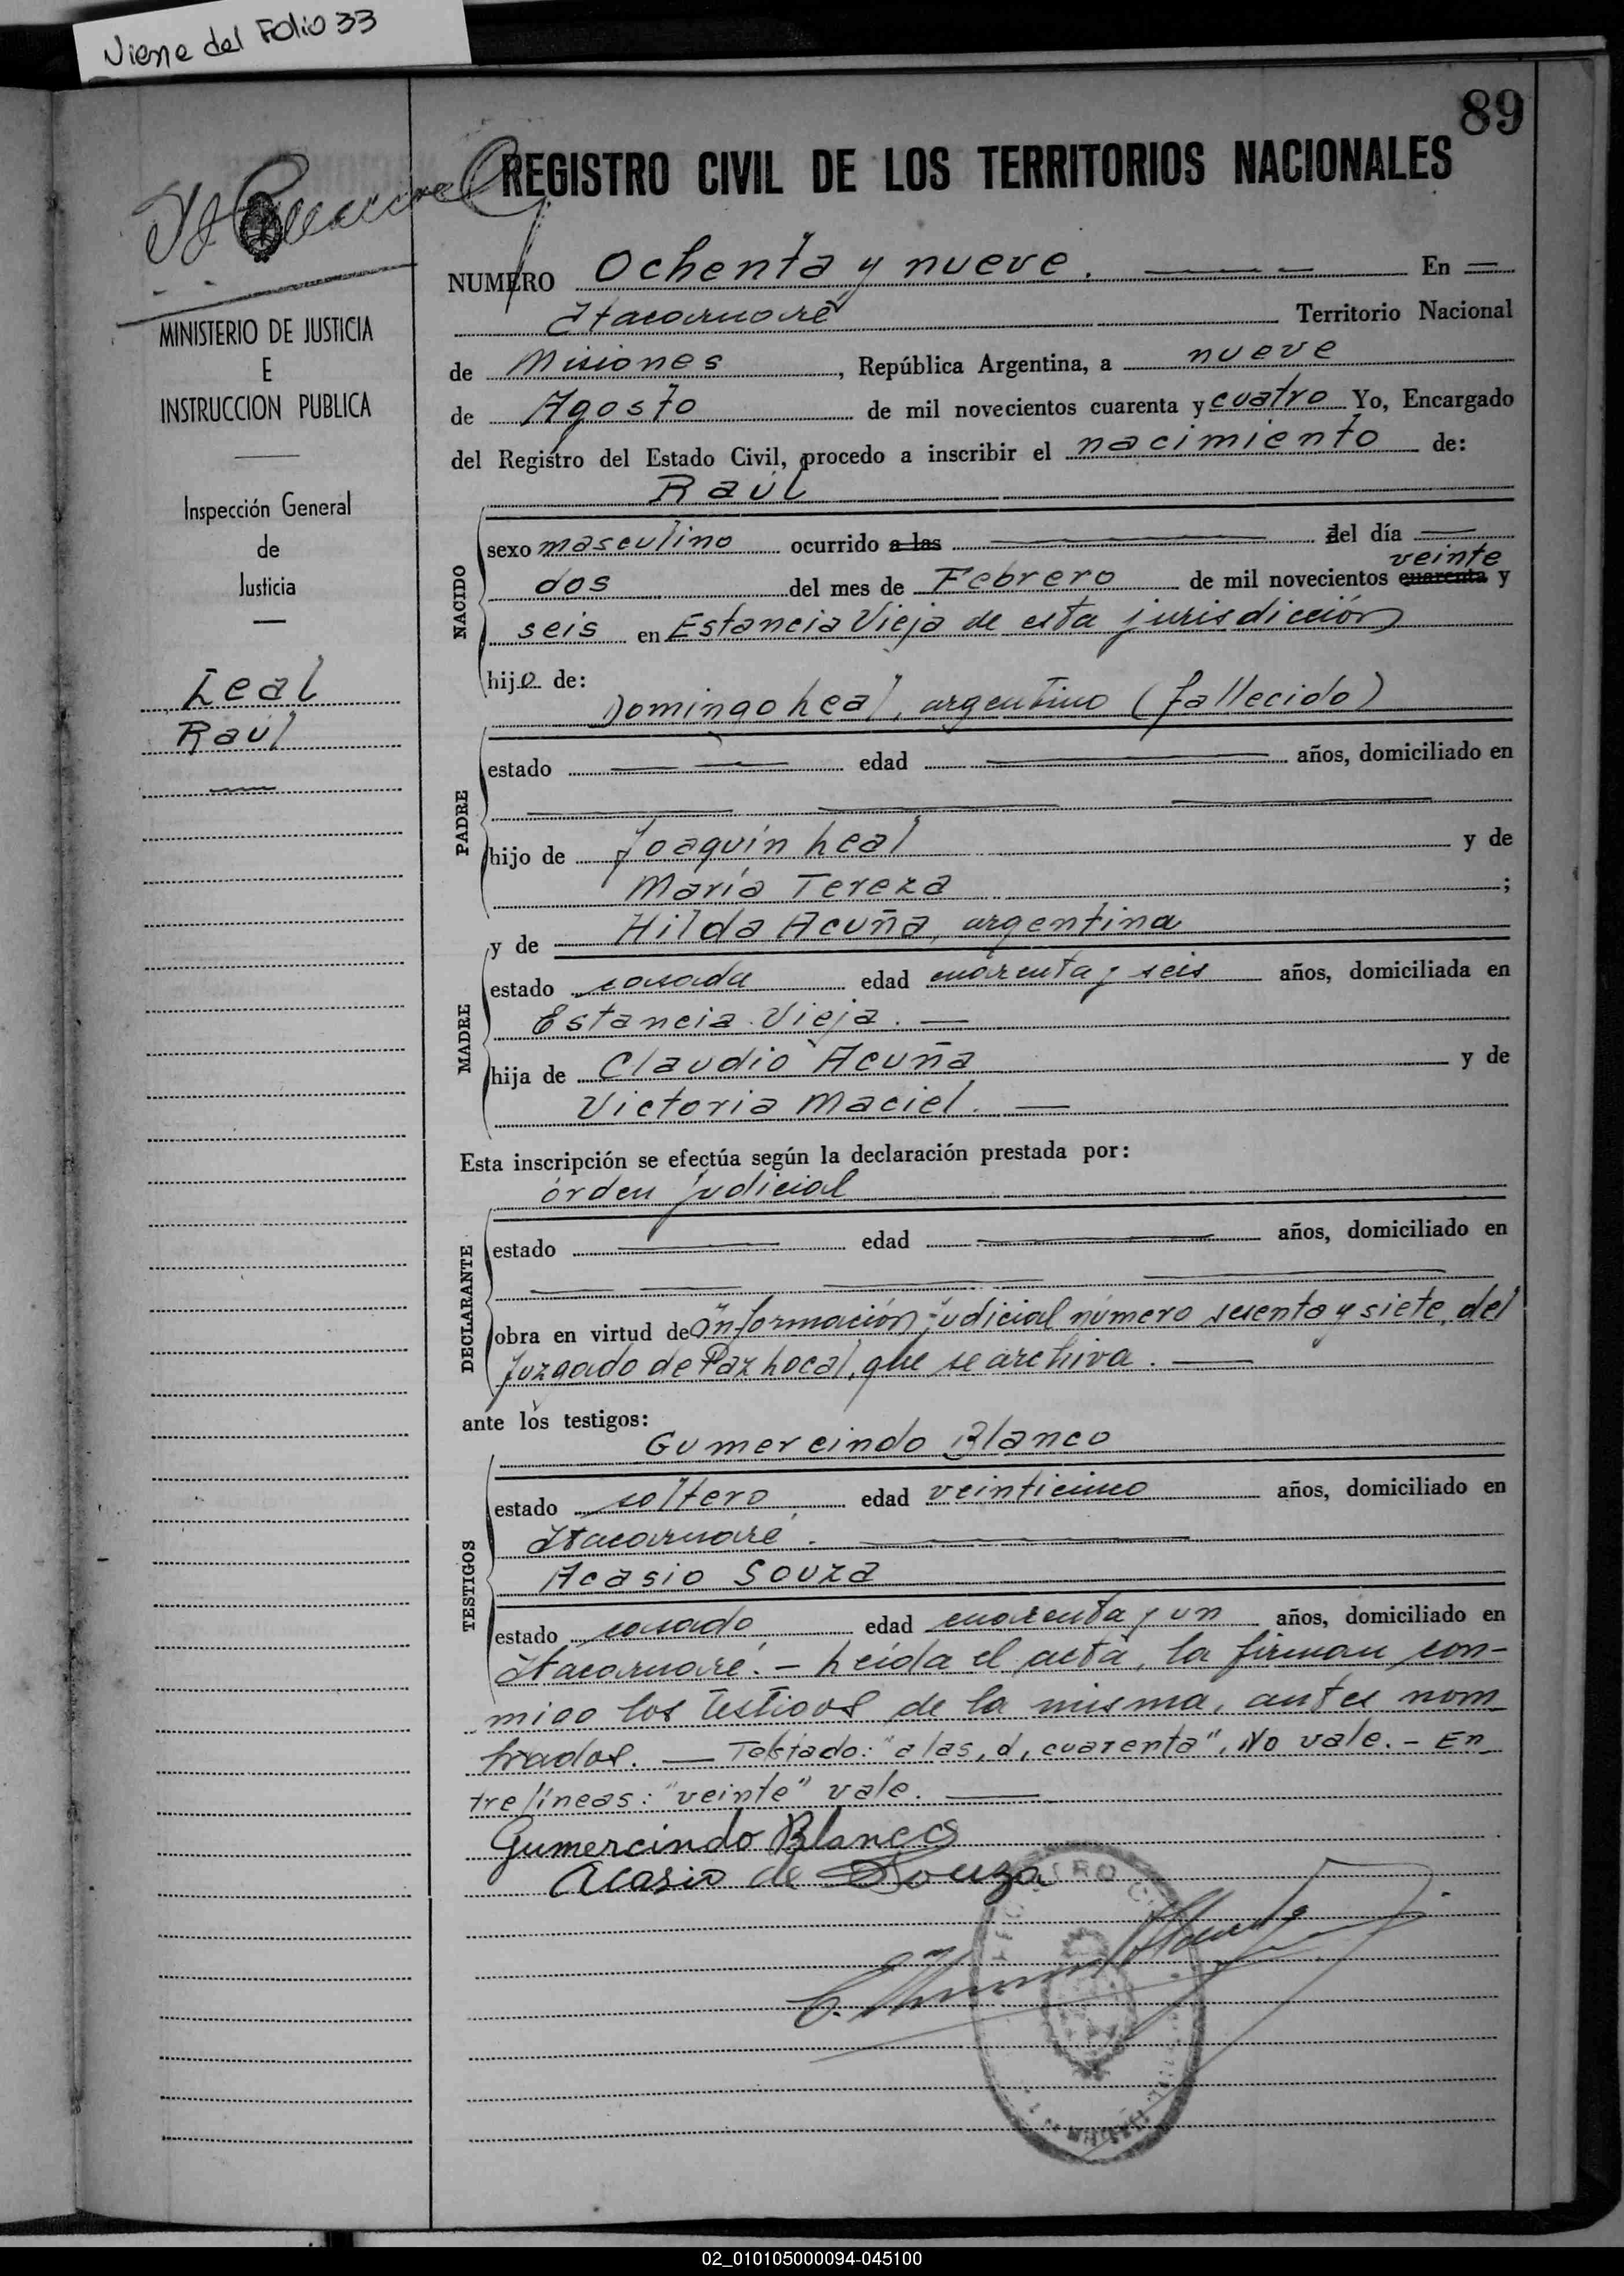 Viene del Folio 33
89
REGISTRO CIVIL DE LOS TERRITORIOS NACIONALES
NUMERO Ochenta y nueve. En
Itacaruaré Territorio Nacional
de Misiones, República Argentina, a nueve
de Agosto de mil novecientos cuarenta y cuatro Yo, Encargado
del Registro del Estado Civil, procedo a inscribir el nacimiento de:
Raúl
MINISTERIO DE JUSTICIA
E
INSTRUCCION PUBLICA
Inspección General
de
Justicia
Leal
Raúl
NACIDO
sexo masculino ocurrido a las del día
veinte
dos del mes de Febrero de mil novecientos cuarenta y
seis en Estancia Vieja de esta jurisdicción
hijo de:
Domingo Leal, argentino (fallecido)
PADRE
estado edad años, domiciliado en
hijo de Joaquín Leal y de
María Tereza ;
y de Hilda Acuña, argentina
MADRE
estado casada edad cuarenta y seis años, domiciliada en
Estancia Vieja.
hija de Claudio Acuña y de
Victoria Maciel.
Esta inscripción se efectúa según la declaración prestada por:
órden judicial
DECLARANTE
estado edad años, domiciliado en
obra en virtud de información judicial número sesenta y siete, del
Juzgado de Paz Local, que se archiva.
ante los testigos:
Gumercindo Blanco
TESTIGOS
estado soltero edad veinticinco años, domiciliado en
Itacaruaré.
Acasio Souza
estado casado edad cuarenta y un años, domiciliado en
Itacaruaré. - Leída el acta, la firman con-
migo los testigos de la misma, antes nom
brados. — Testado: "a las, d, cuarenta", No vale. - En
trelíneas: "veinte" vale.
Gumercindo Blanco
Acasio de Souza
02_010105000094-045100